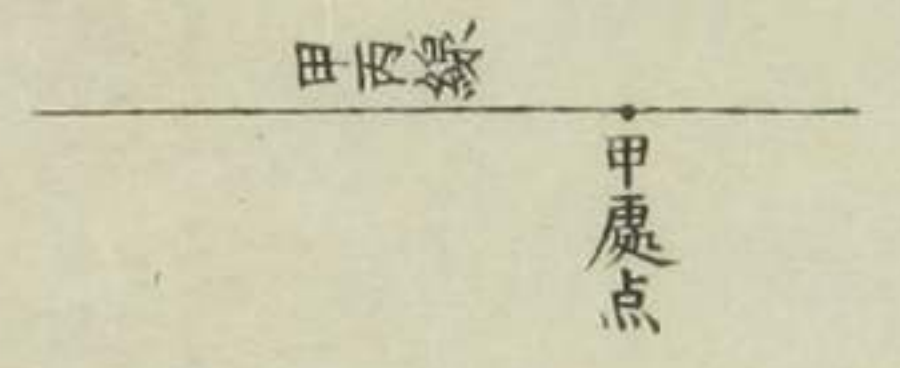 甲丙線
甲處点